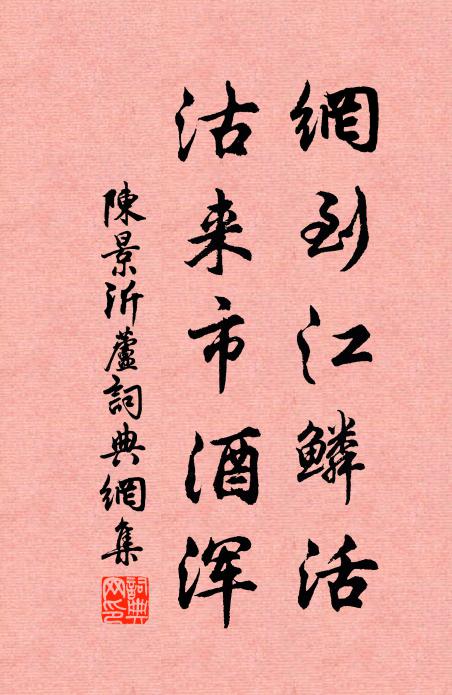 網到江鱗活
沽来市酒浑
陳景沂蘆詞典網集
詞典網印